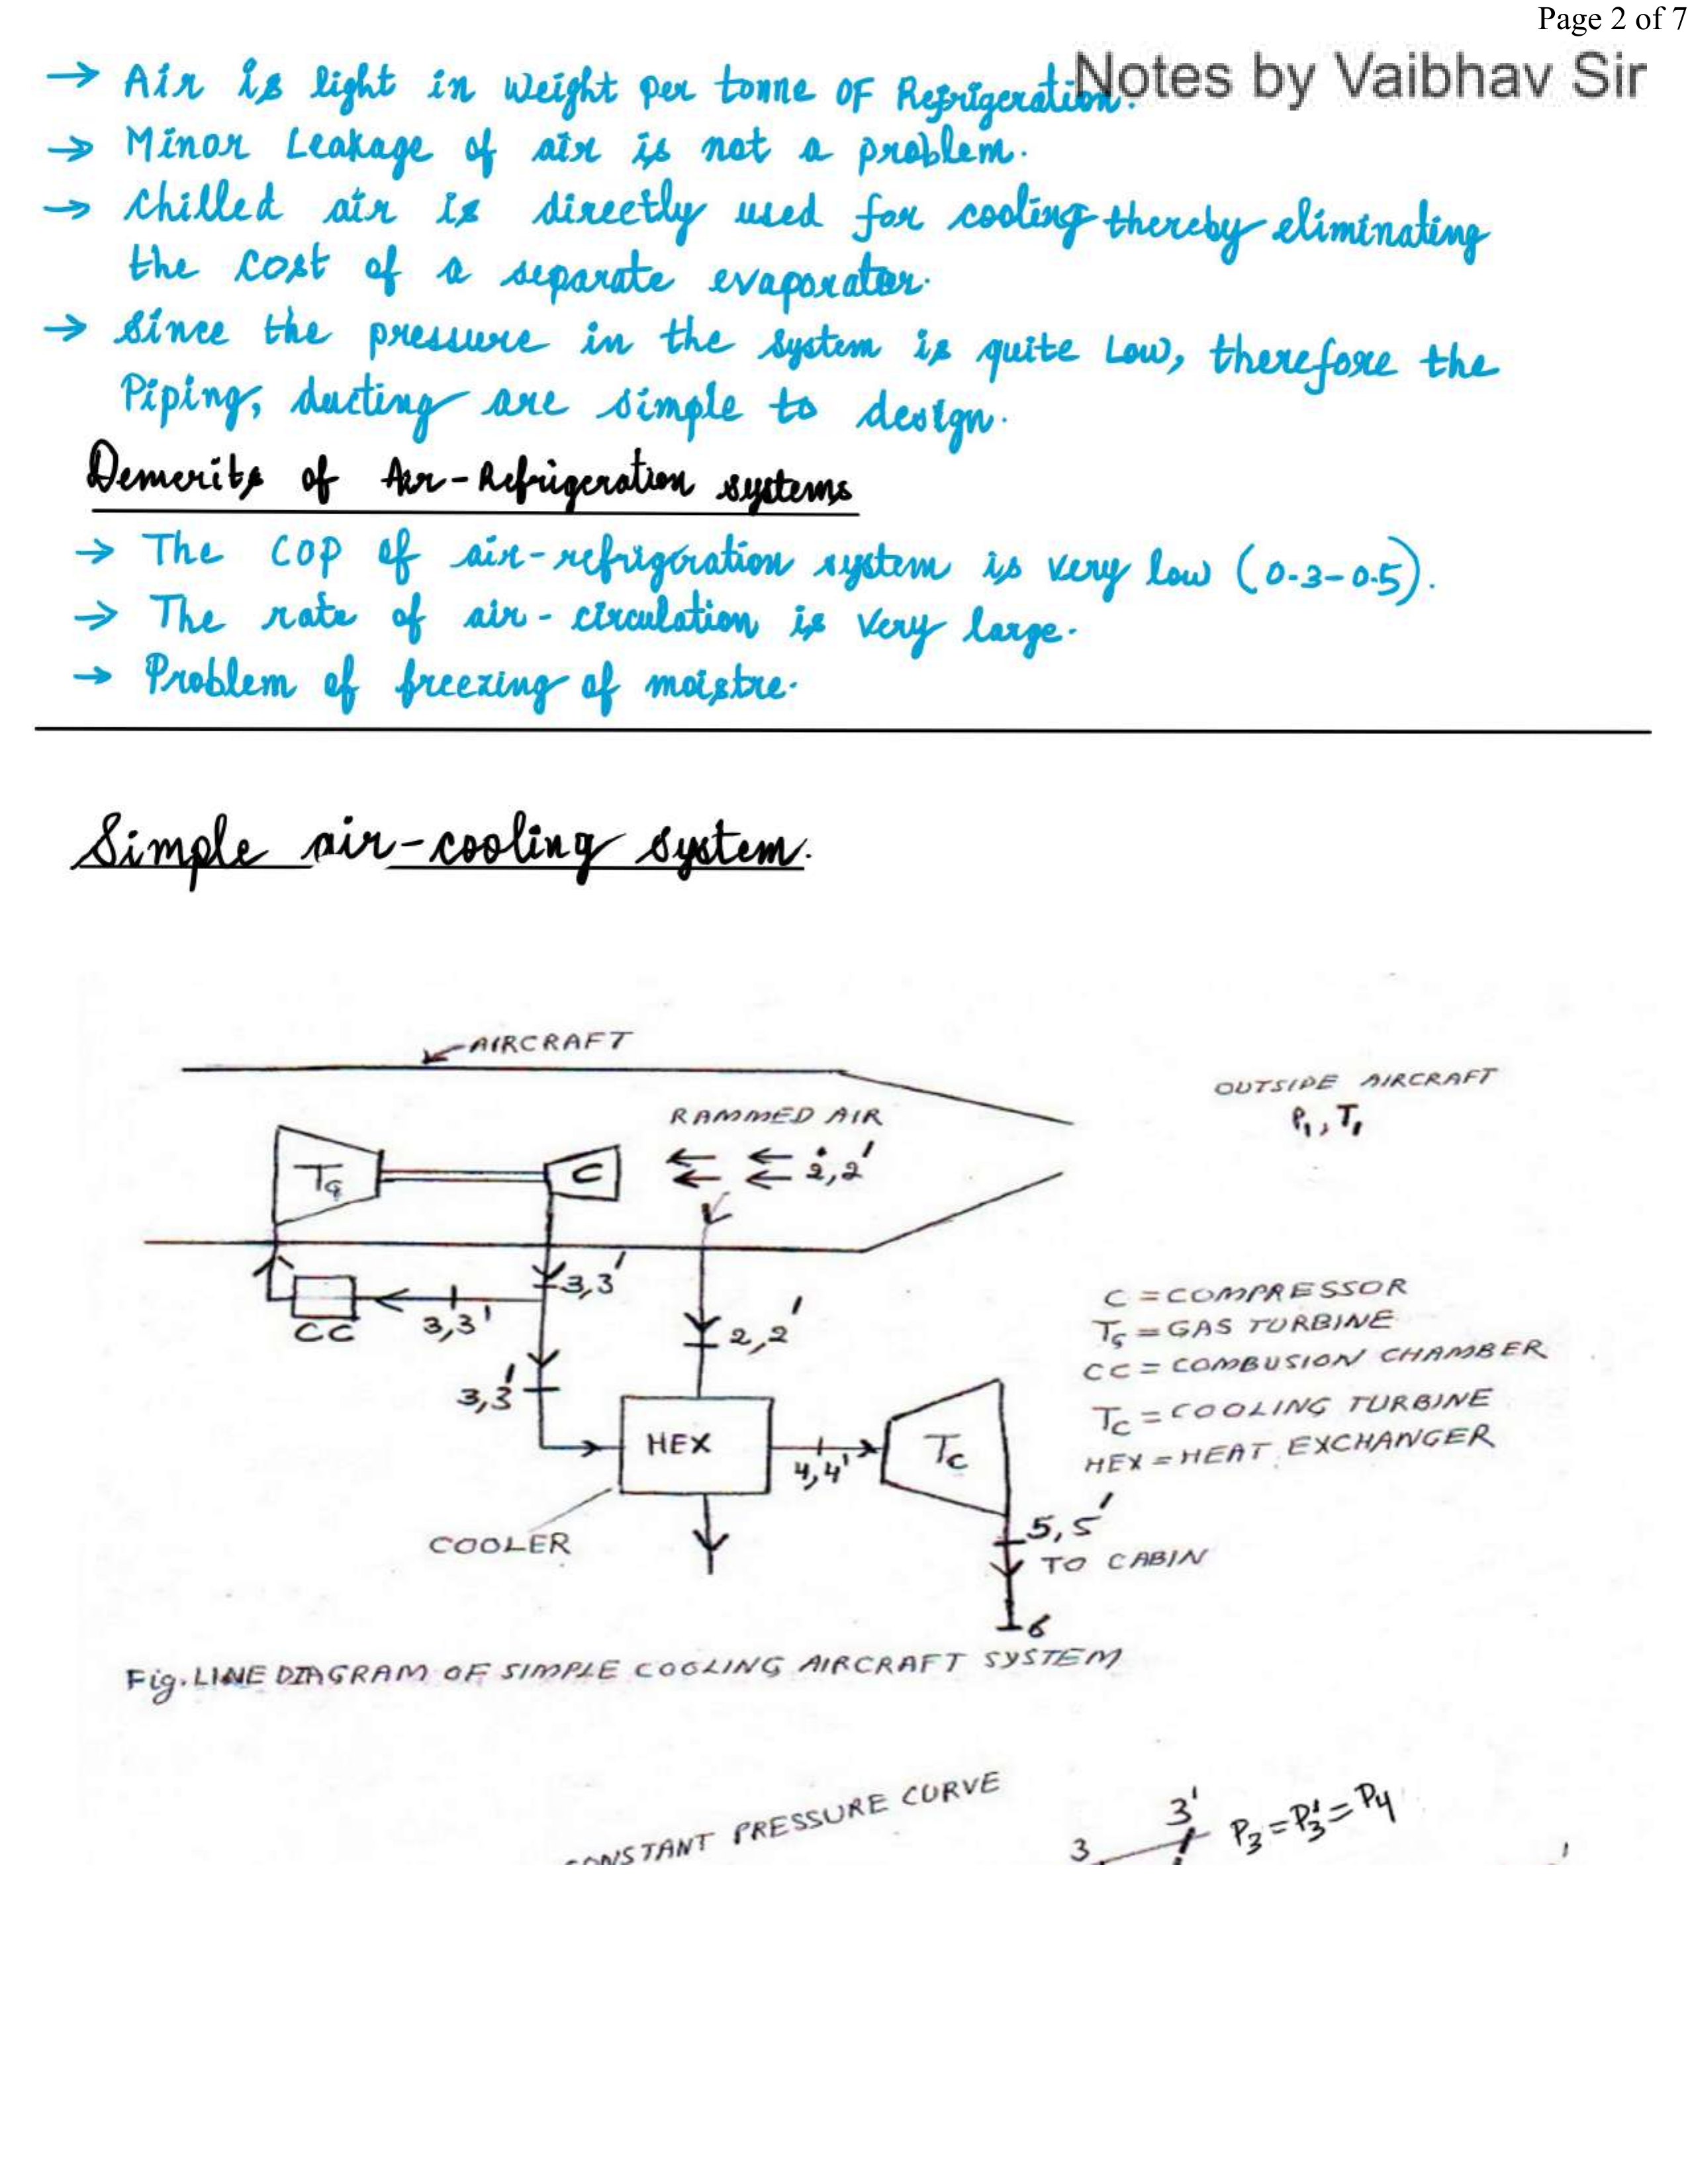 Page 2 of 7
Notes by Vaibhav Sir
→ Air is light in weight per tonne OF Refrigeration.
→ Minor Leakage of air is not a problem.
→ chilled air is directly used for cooling thereby eliminating
the cost of a separate evaporator.
→ Since the pressure in the system is quite Low, therefore the
Piping, ducting are simple to design.
Demerits of Air-Refrigeration systems
→ The COP of air-refrigeration system is very low (0.3-0.5).
→ The rate of air-circulation is very large.
→ Problem of freezing of moistre.
Simple air-cooling system.
AIRCRAFT
OUTSIDE AIRCRAFT
P₁, T₁
RAMMED AIR
TG
C
2,2'
3,3'
CC
3,3'
2,2'
3,3'
C = COMPRESSOR
TG = GAS TURBINE
CC = COMBUSION CHAMBER
TC = COOLING TURBINE
HEX = HEAT EXCHANGER
HEX
4,4'
TC
COOLER
5,5'
TO CABIN
6
Fig. LINE DIAGRAM OF SIMPLE COOLING AIRCRAFT SYSTEM
CONSTANT PRESSURE CURVE
3
3'
P₃ = P₃' = P₄